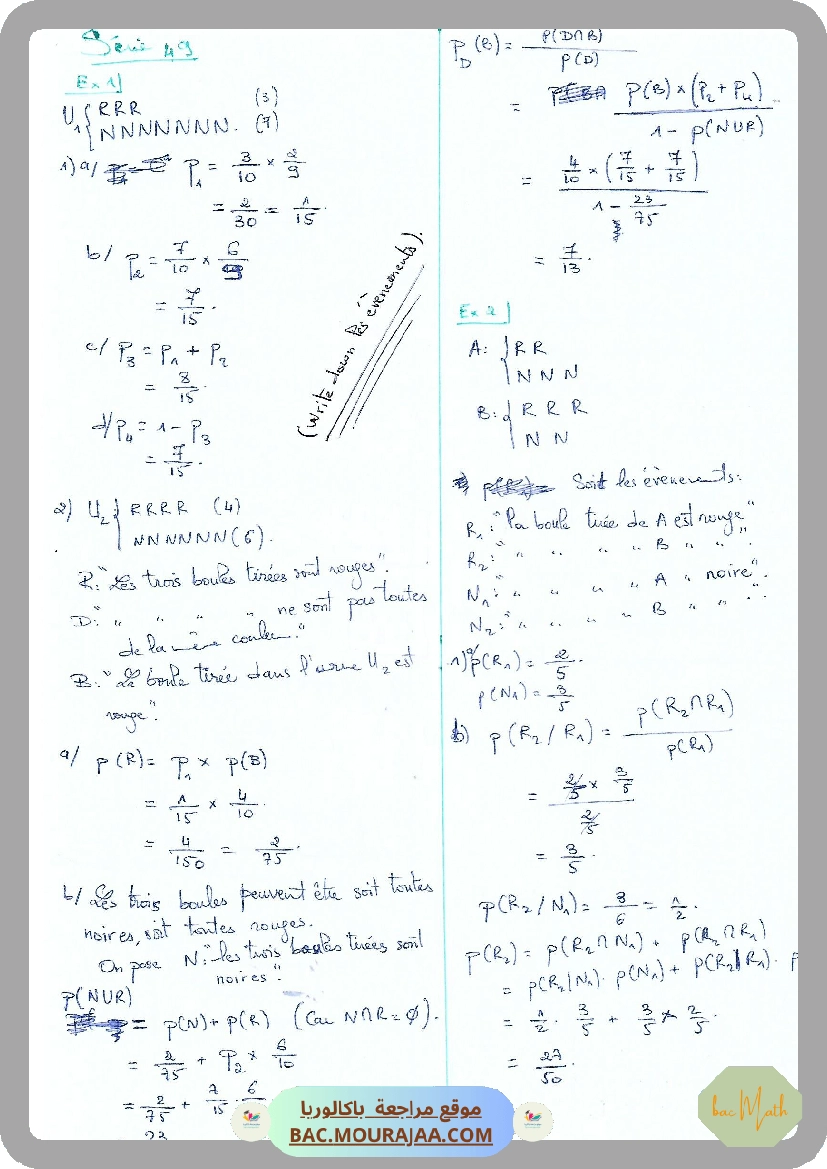 Série 49
Ex 1)
U₁ { RRR (3)
NNNNNNN. (7)
1) a/ P₁ = 3/10 × 2/9
= 2/30 = 1/15.
b/ P₂ = 7/10 × 6/9
= 7/15.
c/ P₃ = P₁ + P₂
= 8/15.
d/ P₄ = 1 - P₃
= 7/15.
(Write down les évènements).
2) U₂ { RRRR (4)
NNNNNN (6).
R: "Les trois boules tirées sont rouges".
D: " " " " ne sont pas toutes
de la même couleur."
B: "La boule tirée dans l'urne U₂ est
rouge".
a/ p(R) = P₁ × p(B)
= 1/15 × 4/10.
= 4/150 = 2/75.
b/ Les trois boules peuvent être soit toutes
noires, soit toutes rouges.
On pose N: "les trois boules tirées sont
noires".
p(NUR)
= p(N) + p(R) (Car N∩R = ∅).
= 2/75 + P₂ × 6/10
= 2/75 + 7/15 · 6
23
P_D(B) = p(D∩B) / p(D)
= p(B) × (P₂ + P₄) / 1 - p(NUR)
= 4/10 × (7/15 + 7/15) / 1 - 23/75
= 7/13.
Ex 2)
A: { R R
N N N
B: { R R R
N N
Soit les évènements:
R₁: "la boule tirée de A est rouge"
R₂: " " " " B " "
N₁: " " " " A " noire".
N₂: " " " " B " "
1) a/ p(R₁) = 2/5.
p(N₁) = 3/5
b) p(R₂/R₁) = p(R₂∩R₁) / p(R₁)
= 2/5 × 3/5 / 2/5
= 3/5.
p(R₂/N₁) = 3/6 = 1/2.
p(R₂) = p(R₂∩N₁) + p(R₂∩R₁)
= p(R₂/N₁). p(N₁) + p(R₂/R₁). p
= 1/2 · 3/5 + 3/5 × 2/5.
= 27/50.
موقع مراجعة باكالوريا
BAC.MOURAJAA.COM
bac Math